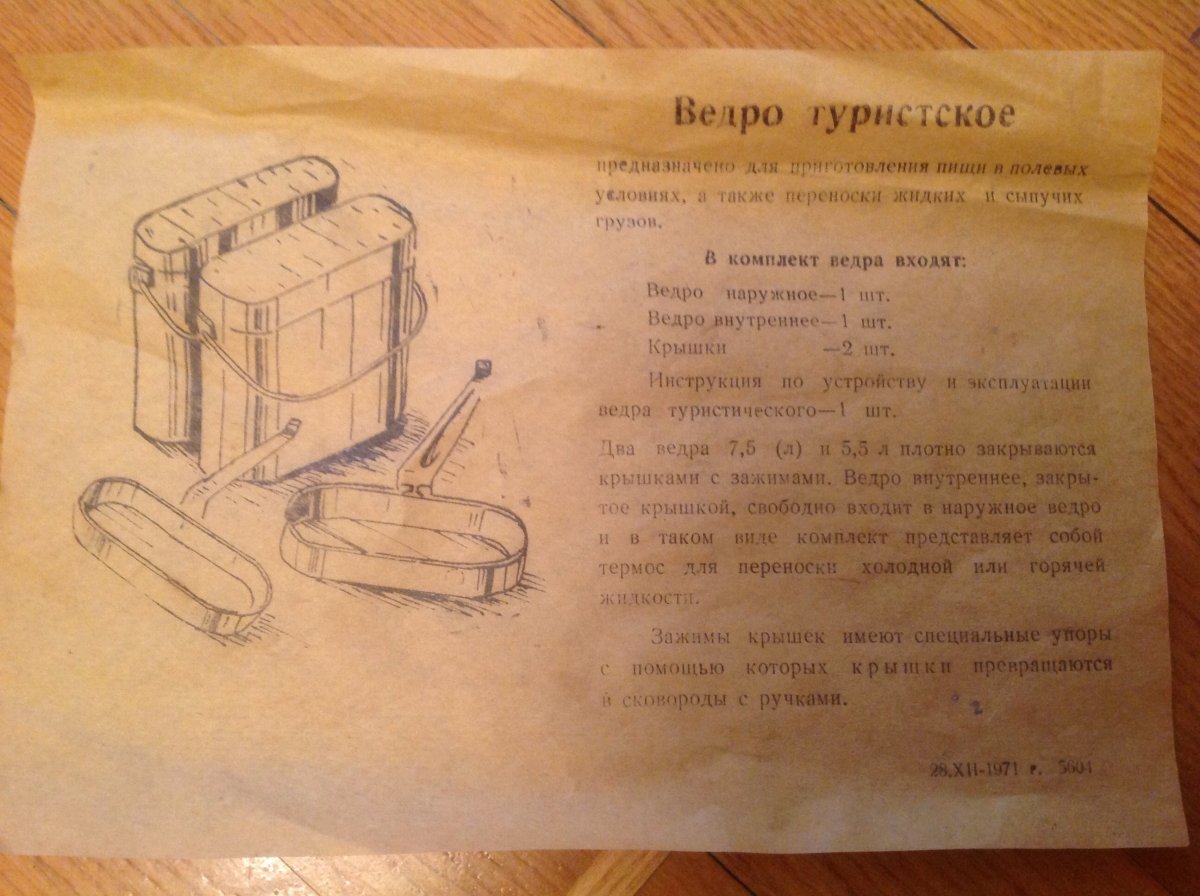 Ведро туристское
предназначено для приготовления пищи в полевых
условиях, а также переноски жидких и сыпучих
грузов.
В комплект ведра входят:
Ведро наружное—1 шт.
Ведро внутреннее—1 шт.
Крышки —2 шт.
Инструкция по устройству и эксплуатации
ведра туристического—1 шт.
Два ведра 7,5 (л) и 5,5 л плотно закрываются
крышками с зажимами. Ведро внутреннее, закры-
тое крышкой, свободно входит в наружное ведро
и в таком виде комплект представляет собой
термос для переноски холодной или горячей
жидкости.
Зажимы крышек имеют специальные упоры
с помощью которых крышки превращаются
в сковороды с ручками.
2
28.XII-1971 г. 5604